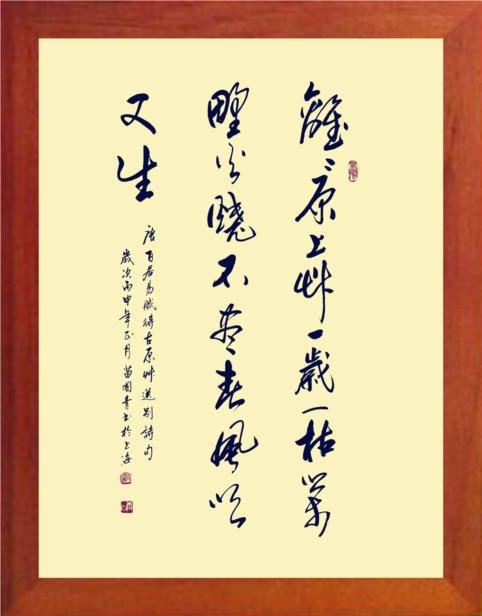 離〻原上艸一歲一枯榮
野火燒不盡春風吹
又生
唐白居易賦得古原艸送別詩句
歲次丙申年正月苗國青書於上海